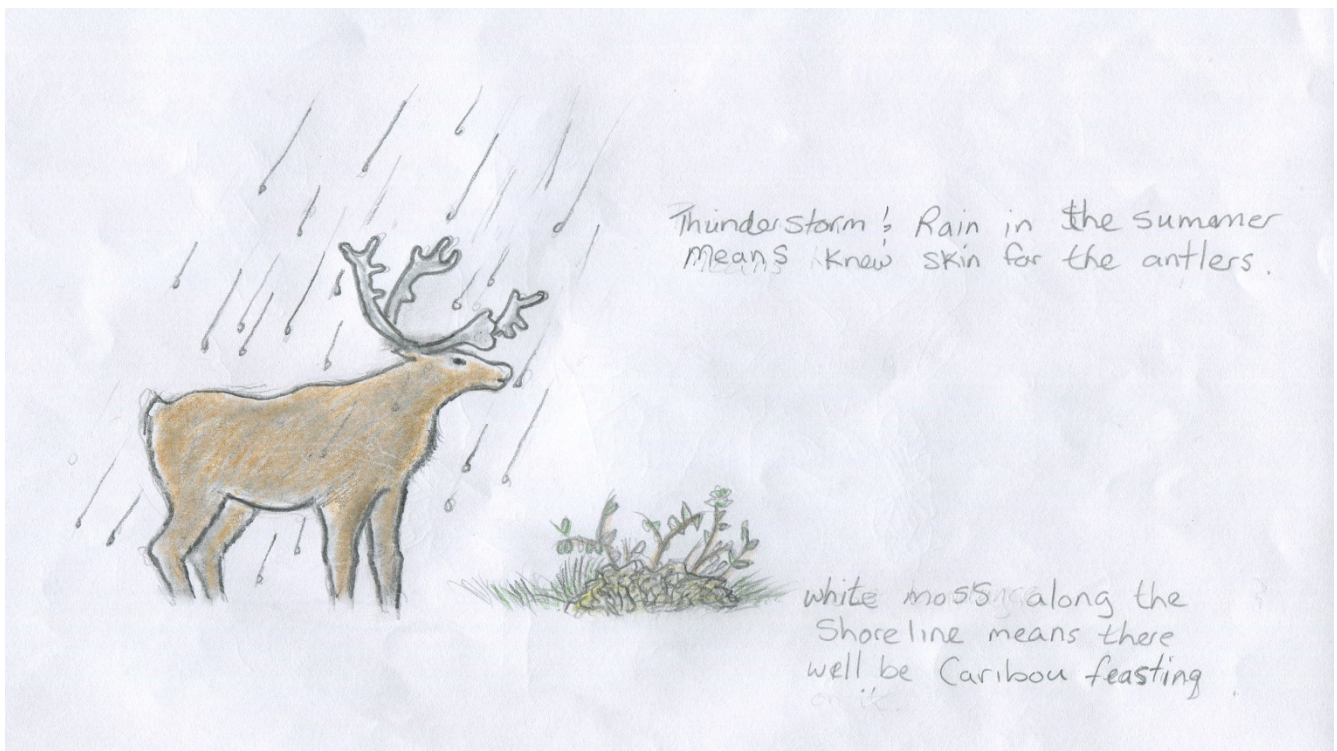 Thunderstorm & Rain in the summer
means knew skin for the antlers.
white moss along the
Shoreline means there
well be Caribou feasting
on it.